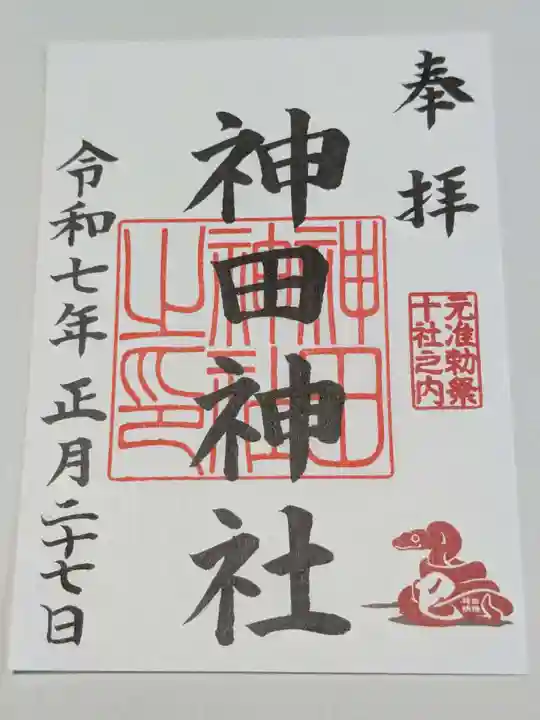 奉拝
元准勅祭
十社之内
神田神社
神田神社之印
令和七年正月二十七日